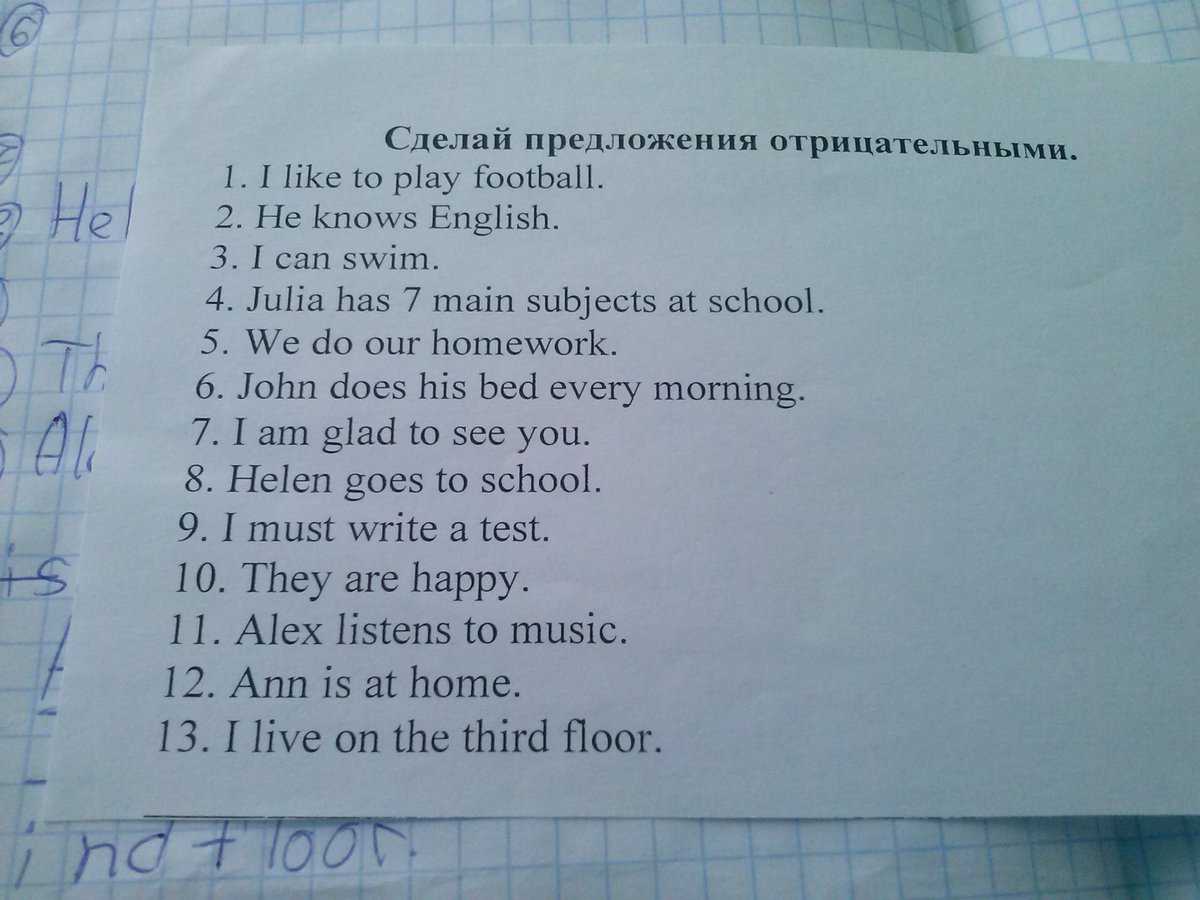 6
Сделай предложения отрицательными.
1. I like to play football.
2. He knows English.
3. I can swim.
4. Julia has 7 main subjects at school.
5. We do our homework.
6. John does his bed every morning.
7. I am glad to see you.
8. Helen goes to school.
9. I must write a test.
10. They are happy.
11. Alex listens to music.
12. Ann is at home.
13. I live on the third floor.
Hel
Th
is
floor.